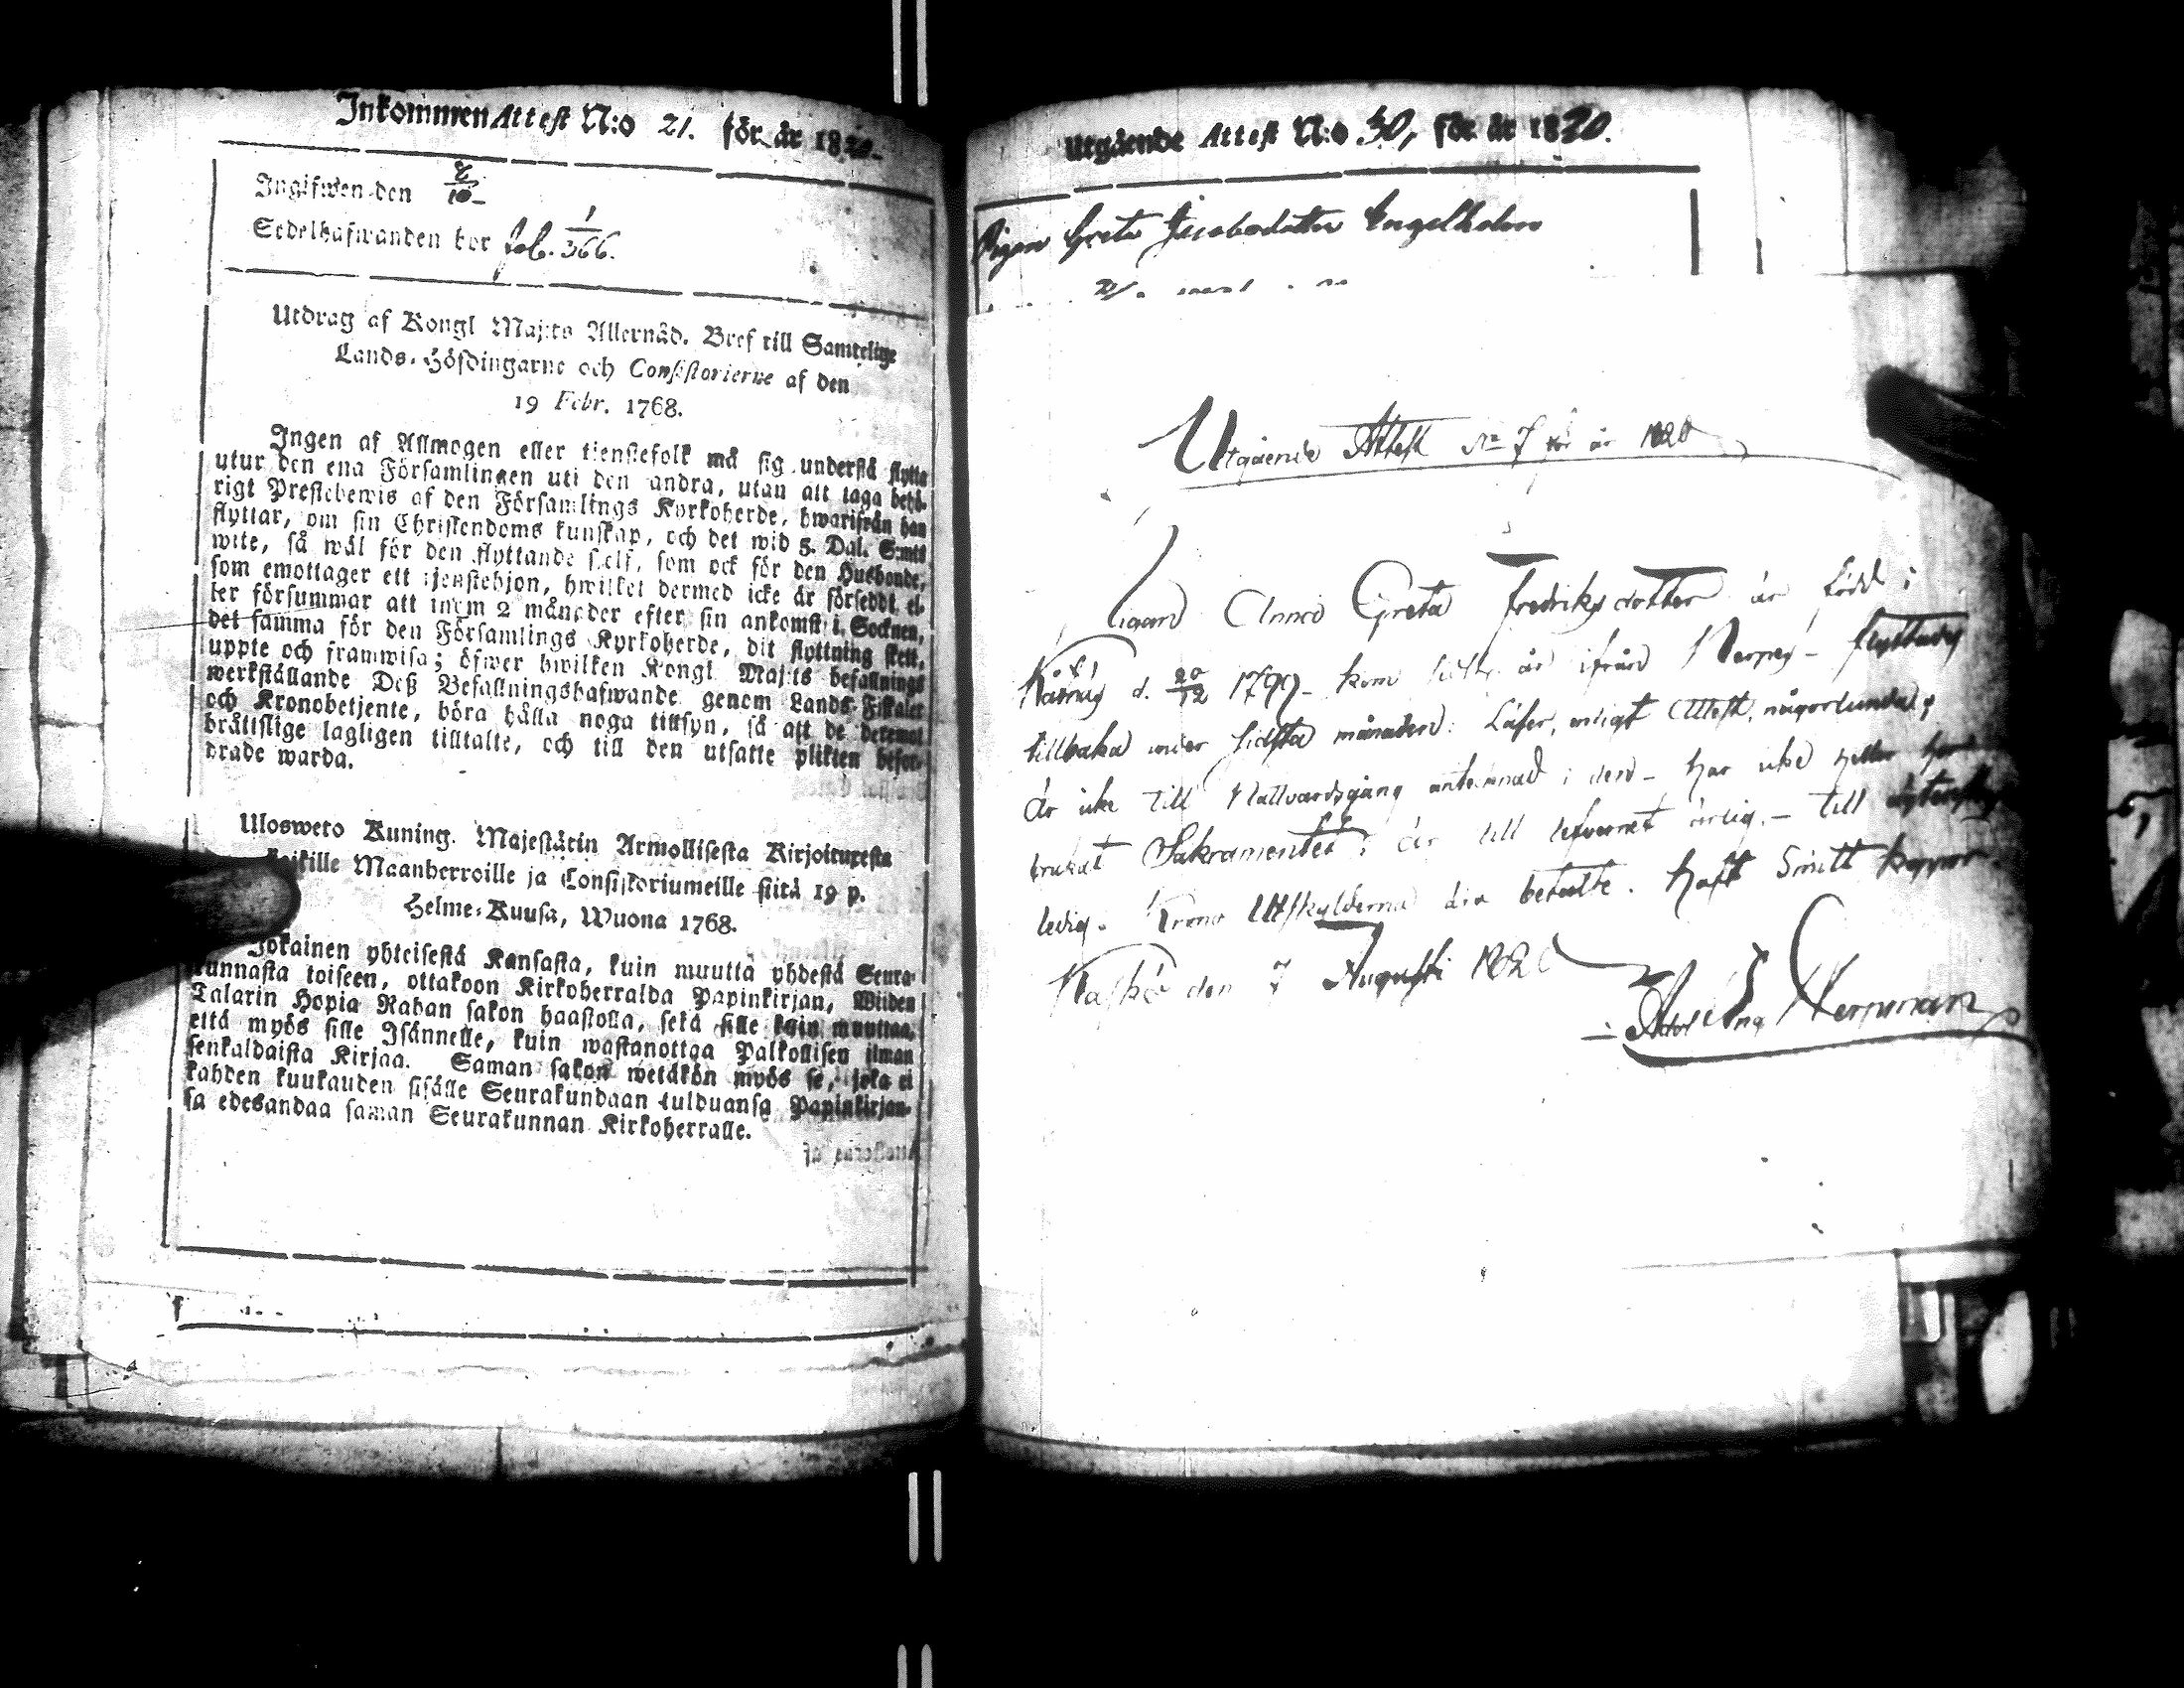 Inkommen Attest N:o 21. för år 1820.
Ingifwen den 8/10
Sedelhafwanden bor fol. 1/366.
Utdrag af Kongl Maj:ts Allernåd. Bref till Samtelige
Lands-Höfdingarne och Consistorierne af den
19 Febr. 1768.
Ingen af Allmogen eller tienstefolk må sig understå flytta
utur den ena Församlingen uti den andra, utan att taga behö-
rigt Prestebewis af den Församlings Kyrkoherde, hwarifrån han
flyttar, om sin Christendoms kunskap, och det wid 5. Dal. S:mts
wite, så wäl för den flyttande sielf, som ock för den Husbonde,
som emottager ett tjenstehjon, hwilket dermed icke är försedd, el-
ler försummar att inom 2 månader efter sin ankomst i Socknen,
det samma för den Församlings Kyrkoherde, dit flyttning skett,
uppte och framwisa; öfwer hwilken Kongl Maj:ts befallnings
werkställande Deß Befallningshafwande genom Lands-Fiskaler
och Kronobetjente, böra hålla noga tillsyn, så att de deremot
bråtislige lagligen tilltalte, och till den utsatte plikten befor-
drade warda.
Ulosweto Kuning. Majestätin Armollisesta Kirjoituxesta
kaikille Maanherroille ja Consistoriumeille siitä 19 p.
Helme-Kuusa, Wuona 1768.
Jokainen yhteisestä Kansasta, kuin muuttä yhdestä Seura-
kunnasta toiseen, ottakoon Kirkoherralda Papinkirjan, Wiiden
Talarin Hopia Rahan sakon haastolla, sekä sille kuin muuttaa,
että myös sille Isännelle, kuin wastanottaa Palkollisen ilman
senkaldaista Kirjaa. Saman sakon wetäkön myös se, joka ei
kahden kuukauden sisälle Seurakundaan tulduansa Papinkirjan-
sa edesandaa saman Seurakunnan Kirkoherralle.
Utgående Attest N:o 30, för år 1820.
Pigan Greta Jacobsdotter Engelholm
Utgående Attest No 7 för år 1820
Anna Greta Fredriksdotter är född i
d. 20/12 1799 kom år ifrån Nerpes flyttade
tillbaka under sidsta månaden: Läser, enligt Attest, någorlunda,
är icke till Nattvardsgång antecknad i den har icke heller här
brukat Sakramentet; är till lefvernet ärlig. till
ledig. Krono Utskylderna äro betalte. haft Smitt koppor
Kaskö den 7 Augusti 1820